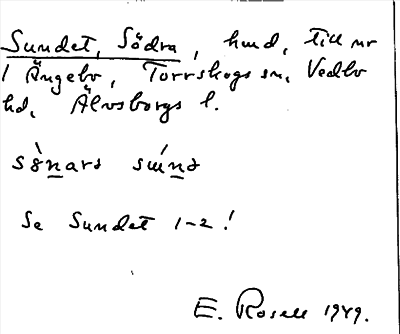 Sundet, Södra, hmd, till nr
1 Ängebo, Torrskogs sn, Vedbo
hd, Älvsborgs l.
Se Sundet 1-2!
E. Rosell 1949.